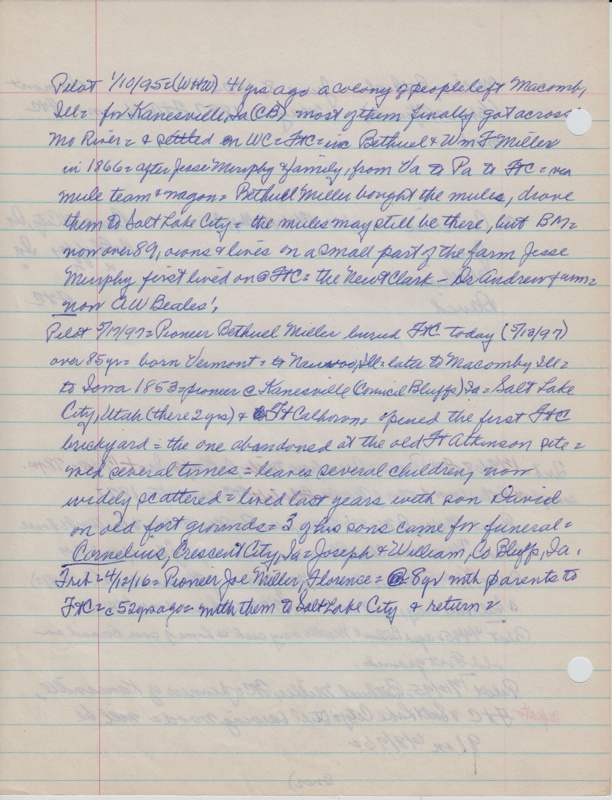 Pilot 1/10/95=(WHW) 41 yrs ago a colony of people left Macomb,
Ill= for Kanesville, Ia (CB) most of them finally got across
Mo River= & settled on WC= FtC= inc Bethuel & Wm F Miller
in 1866= after Jesse Murphy & family, from Va to Pa to FtC= via
mule team & wagon= Bethuel Miller bought the mules, drove
them to Salt Lake City= the mules may still be there, but BM=
now over 89, owns & lives on a small part of the farm Jesse
Murphy first lived on @ FtC= the New & Clark - Dr Andrew farm=
now AW Beales',
Pilot 5/17/97= Pioneer Bethuel Miller buried FtC today (5/13/97)
over 85 yrs= born Vermont= to Nauvoo, Ill= later to Macomb, Ill=
to Iowa 1853= pioneer @ Kanesville Council Bluffs) Ia= Salt Lake
City, Utah (there 2 yrs) & Ft Calhoun= opened the first FtC
brickyard= the one abandoned at the old Ft Atkinson site=
wed several times= leaves several children, now
widely scattered= lived last years with son David
on old fort grounds= 3 of his sons came for funeral=
Cornelius, Crescent City, Ia= Joseph & William, Co Bluffs, Ia.
Trib= 4/12/16= Pioneer Joe Miller, Florence= @ 8 yr with parents to
FtC= c 52 yrs ago= with them to Salt Lake City & return=